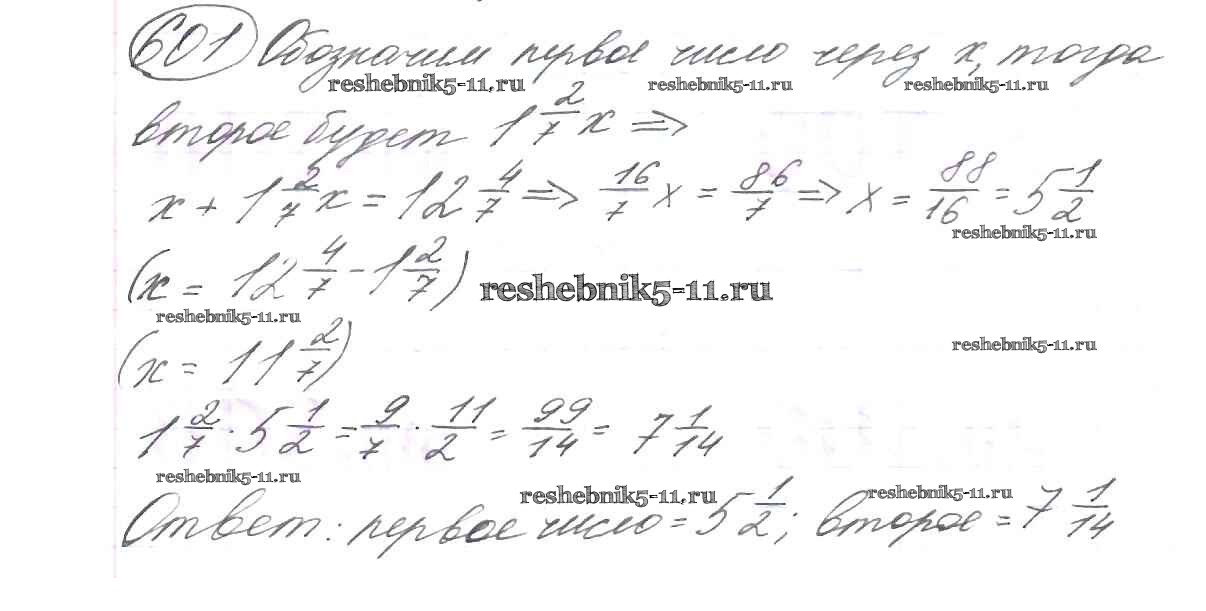 601 Обозначим первое число через x, тогда
reshebnik5-11.ru reshebnik5-11.ru reshebnik5-11.ru
второе будет 1 2/7 x ⇒
x + 1 2/7 x = 12 4/7 ⇒ 16/7 x = 86/7 ⇒ x = 88/16 = 5 1/2
reshebnik5-11.ru
(x = 12 4/7 - 1 2/7) reshebnik5-11.ru
reshebnik5-11.ru
reshebnik5-11.ru
(x = 11 2/7)
1 2/7 · 5 1/2 = 9/7 · 11/2 = 99/14 = 7 1/14
reshebnik5-11.ru
reshebnik5-11.ru reshebnik5-11.ru
Ответ: первое число = 5 1/2; второе = 7 1/14